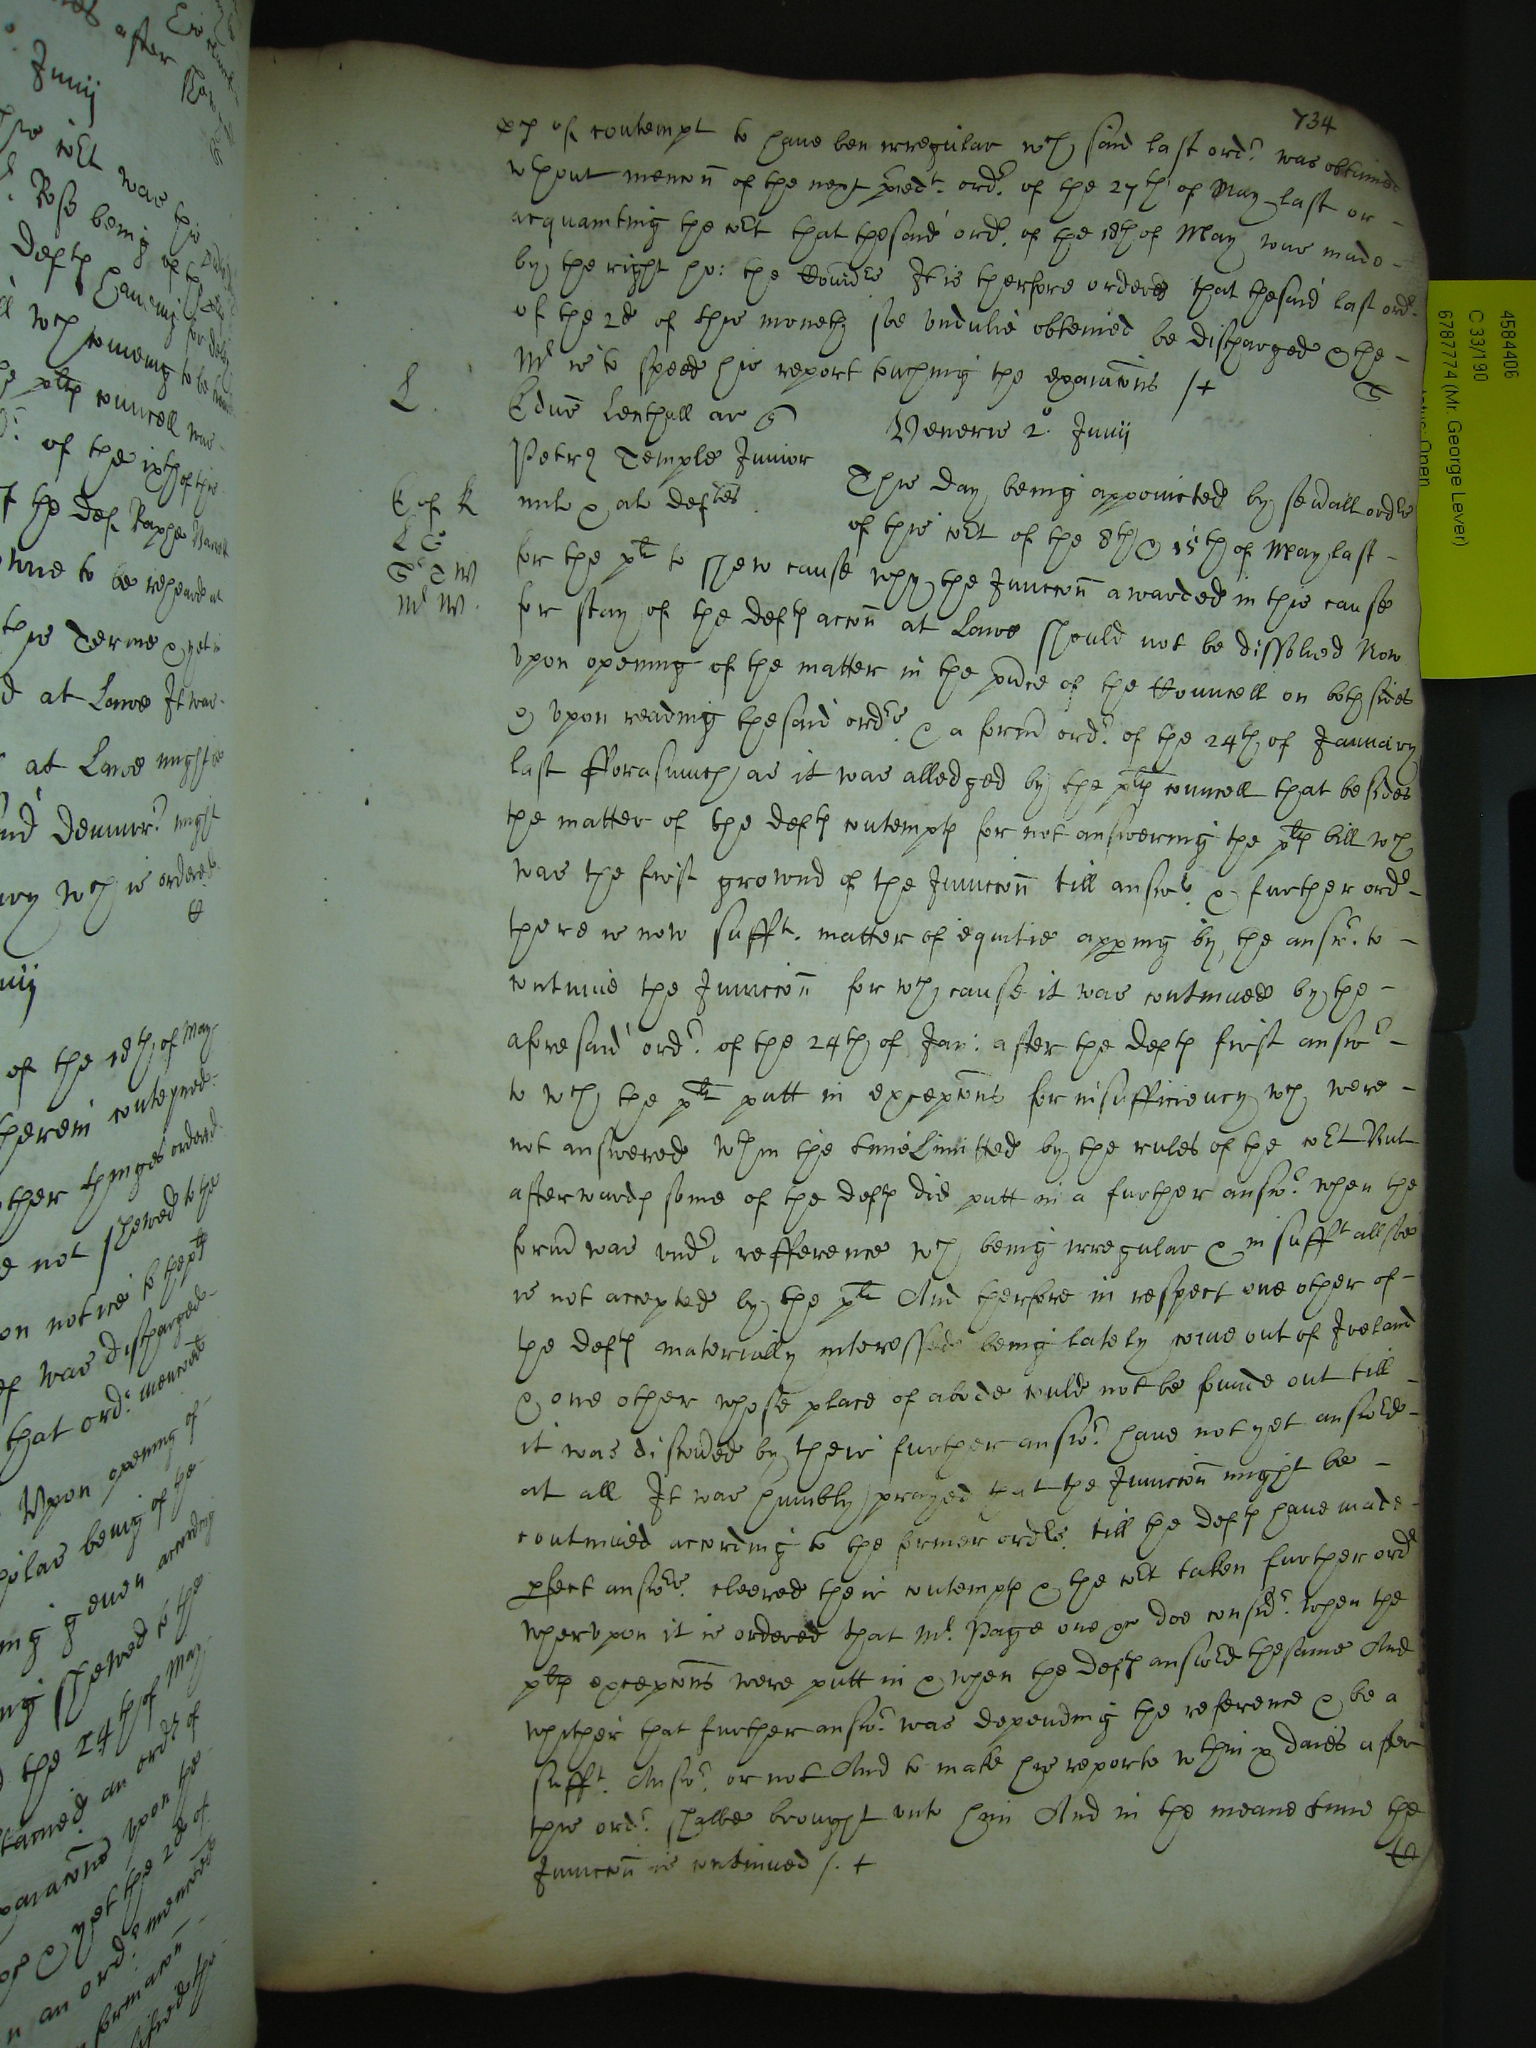 734
of contempt to haue ben irregular wch said last ordr. was obtained
wthout mencon of the next preedt. ordr. of the 27th of May last or -
acquainting the cort that thesaid ordr. of the 18th of May was made -
by the right ho: the It is therfore ordered that thesaid last ordr.
of the 2d of this moneth soe vndulie obteined be discharged & the -
Mr is to speed his report tuching the exaiacons /+
L.
Edus Lenthall ar
Veneris 2o. Junij
Petrus Temple Junior
mil & al deftes
E of K
L E
Sr T W
Mr W.
This day being appointed by seuall ordrs
of this cort of the 8th & 15th of May last -
for the plt to shew cause why the Junccon awarded in this cause
for stay of the defts accon at Lawe should not be dissolued Now
vpon opening of the matter in the pnce of the Councell on both sides
& vpon reading thesaid ordrs. & a form ordr. of the 24th of January
last fforasmuch as it was alledged by the plts councell that besides
the matter of the defts contempts for not answering the plts bill wch
was the first grownd of the Junccon till answr. & further ordr -
there is now sufft. matter of equitie apping by the answr. to -
continue the Junccon for wch cause it was continued by the -
aforesaid ordr. of the 24th of Jan: after the defts first answr -
to wch the plt putt in excepcons for insufficiency wch were -
not answered wthin the time Limitted by the rules of the cort But
afterwards some of the defts did putt in a further answr. when the
form was vndr. refference wch being irregular & insufft allsoe
is not accepted by the plt And therfore in respect one other of -
the defts materially interessed being lately come out of Ireland
& one other whose place of abode could not be founde out till -
it was discoued by their further answr. haue not yet answrd -
at all It was humbly prayed that the Junccon might be -
continued according to the former ordrs. till the defts haue made -
pfect answrs. cleered their contempts & the cort taken further ordr
whervpon it is ordered that Mr. Page one &c doe considr. when the
plts excepcons were putt in & when the defts answrd thesame And
whither that further answr. was depending the reference & be a
sufft. Answr. or not And to make his reporte wthin x daies after
this ordr. shalbe brought vnto him And in the meane time the
Junccon is continued /. +
4584406
C 33/190
6787774 (Mr. George Lever)
Open
Junij
at Lawe It was -
at Lawe might
of the 18th of May
therein conteyned.
other things ordered.
on notice to the plts
was discharged -
that ordr. mencoed
Vpon opening of -
the 24th of May
an ordr of
yet the 2d of